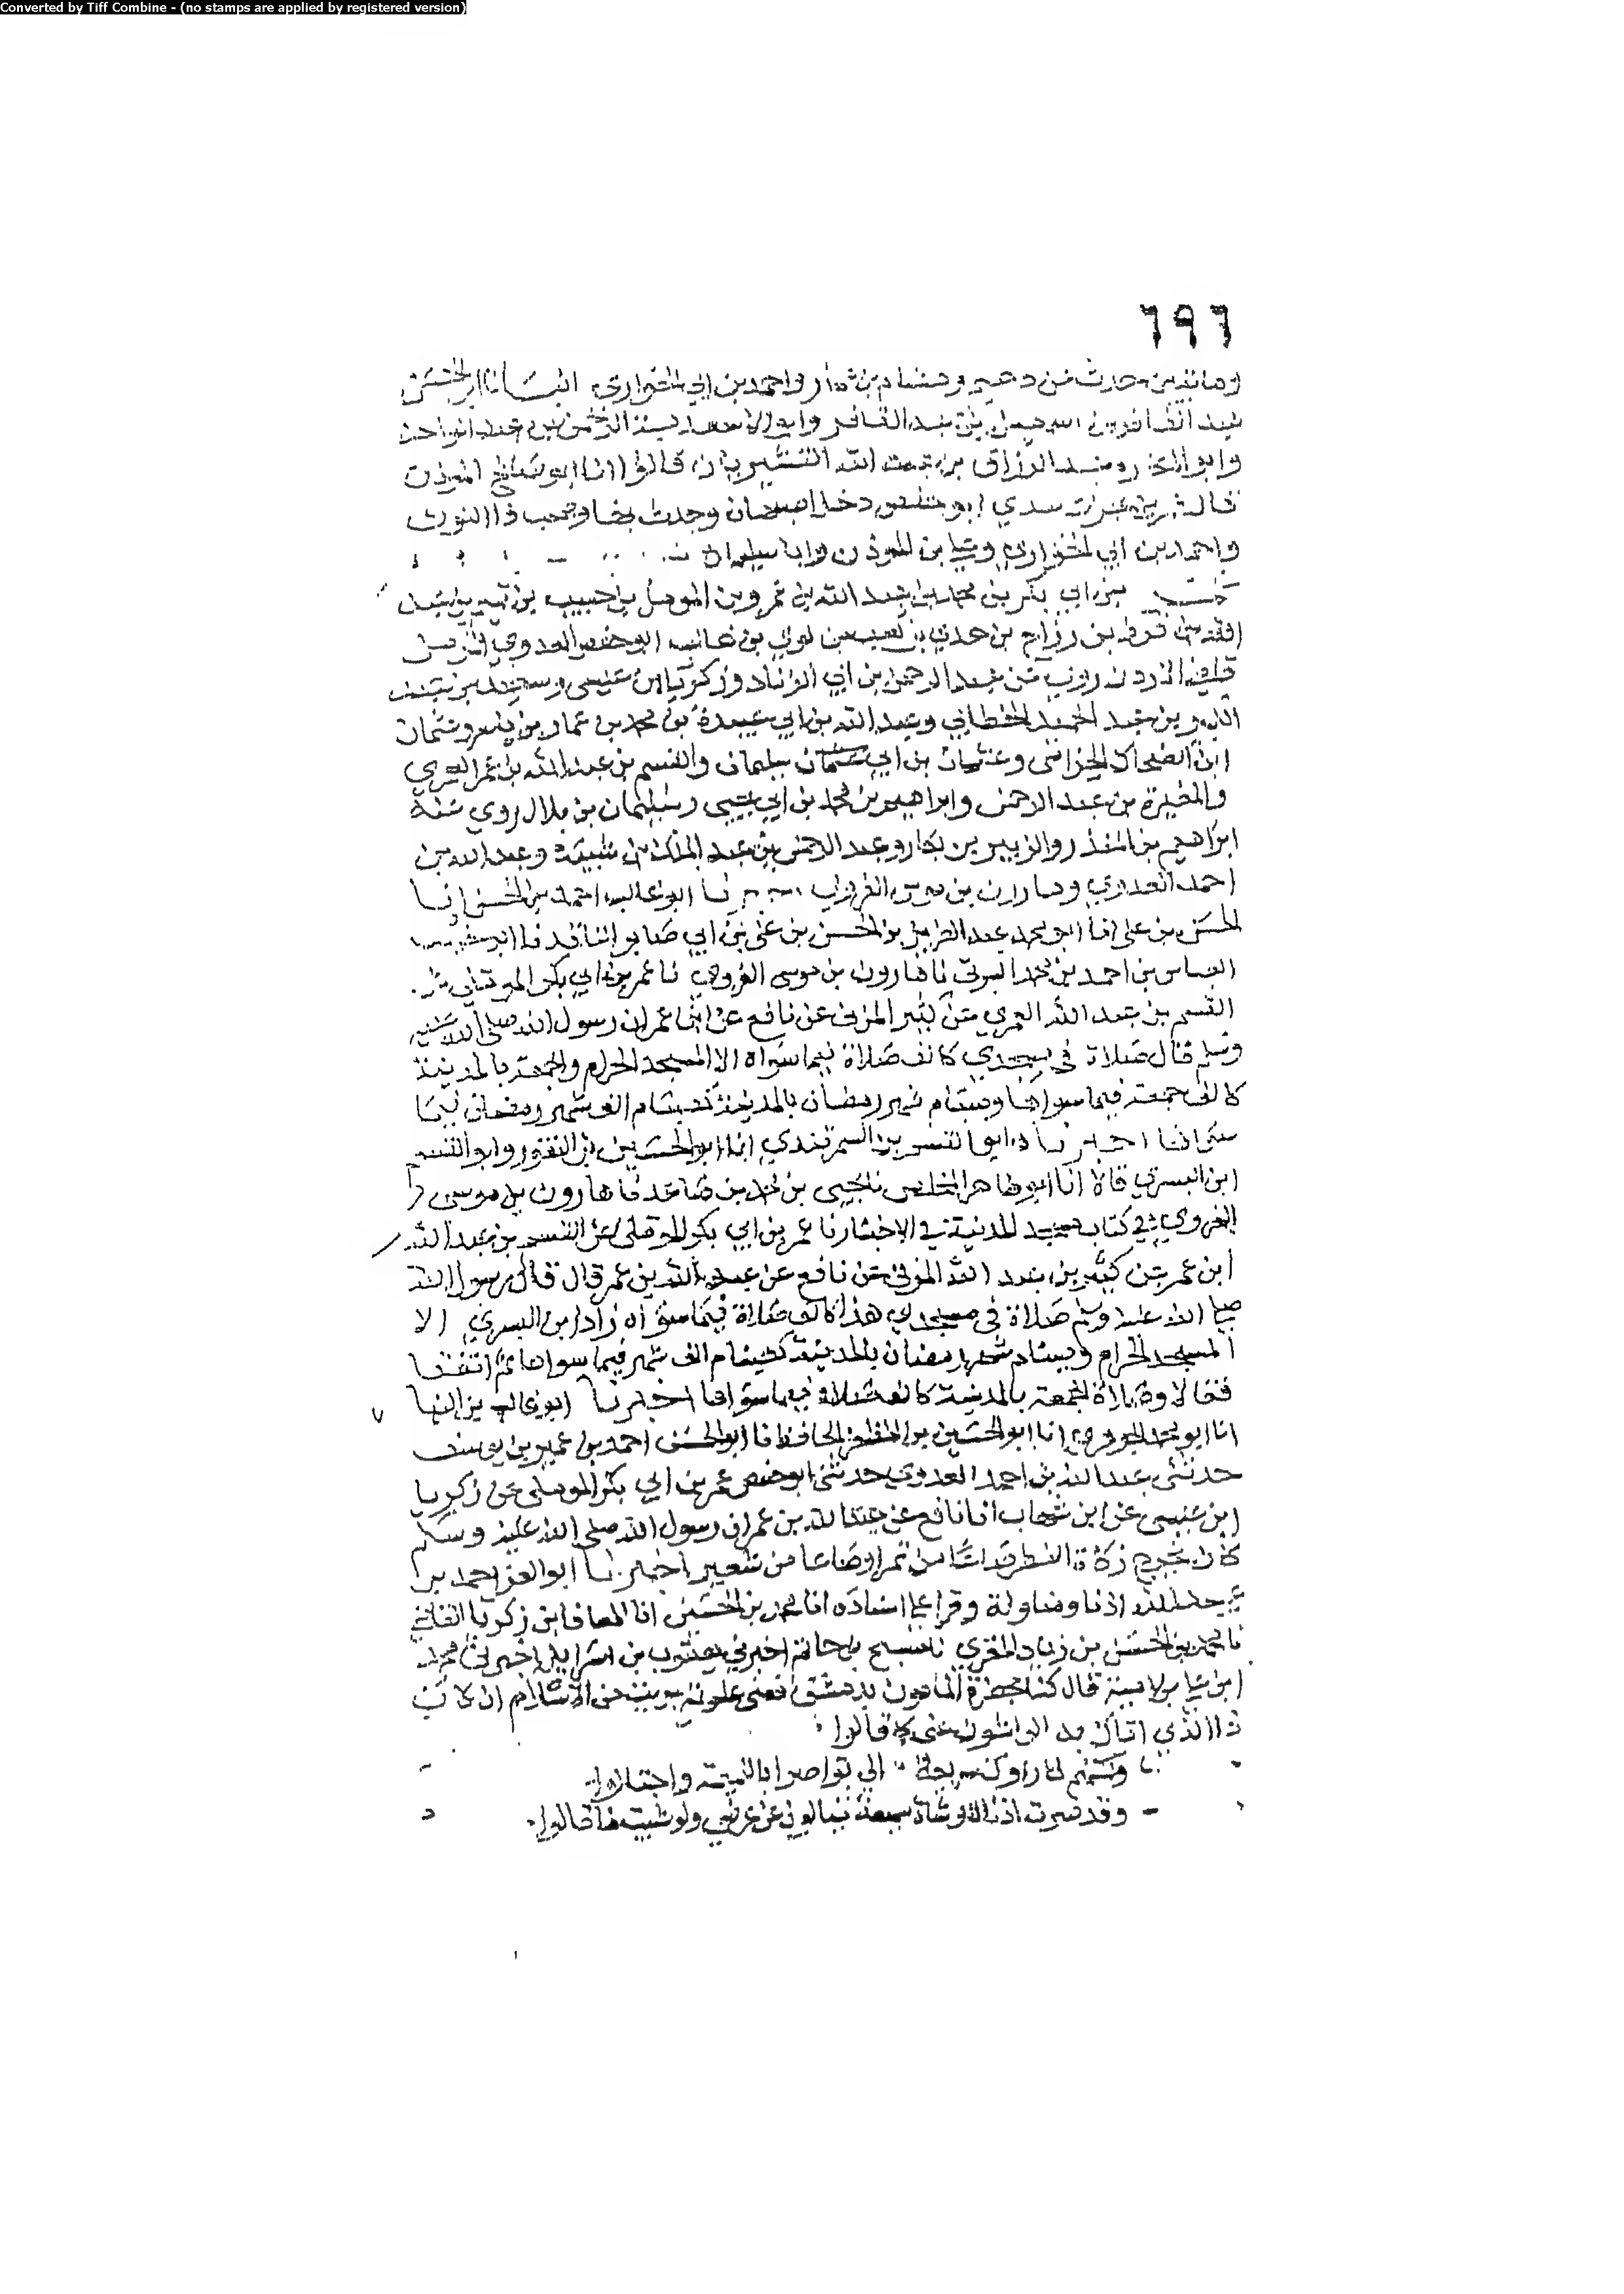 Converted by Tiff Combine - (no stamps are applied by registered version)
٦٩٦
حدث عن دحيم وهشام بن عمار واحمد بن ابي الحواري انبانا ابو الحسن
عبد الغافر وابو الاسعد عبد الرحمن بن عبد الواحد
وابو عبد الرزاق بن عبد الله القشيريان قالوا انا ابو صالح المؤذن
قال سدي ابو دخل اصبهان وجدت بخط وصحب ذا النون
واحمد بن ابي الحواري
عمر بن ابي بكر بن محمد بن عبد الله بن عمرو بن المؤمل بن حبيب بن تميم بن عبد
الله بن قرط بن رزاح بن عدي بن كعب بن لوي بن غالب ابو حفص العدوي
قاضي الاردن روى عن عبد الرحمن بن ابي الزناد وزكريا بن عيسى
بن عبد الحميد وعبد الله بن ابي عبيدة بن محمد بن عمار بن ياسر وعثمان
ابن الضحاك الحزامي وعثمان بن ابي سليمان والقسم بن عبد الله بن عمر العمري
والمغيرة بن عبد الرحمن وابراهيم بن محمد بن ابي يحيى وسليمان بن بلال روى عنه
ابراهيم بن المنذر والزبير بن بكار وعبد الرحمن بن عبد الملك بن شيبة وعبد الله بن
احمد العدوي وهارون بن موسى الفروي اخبرنا ابو غالب احمد بن الحسن انا
الحسن بن علي انا ابو محمد عبد العزيز بن الحسن بن علي بن ابي صابر
العباس بن احمد بن محمد البرتي نا هارون بن موسى الفروي نا عمر بن ابي بكر الموملي
القسم بن عبد الله العمري عن كثير المزني عن نافع عن ابن عمر ان رسول الله صلى الله عليه
وسلم قال صلاة في مسجدي كالف صلاة فيما سواه الا المسجد الحرام والجمعة بالمدينة
كالف جمعة فيما سواها وصيام شهر رمضان بالمدينة كصيام الف شهر رمضان فيما
سواها اخبرنا ابو القسم بن السمرقندي انا ابو الحسين بن النقور وابو القسم
ابن البسري قالا انا ابو طاهر المخلص نا يحيى بن محمد بن صاعد نا هارون بن موسى
الفروي في كتاب مسجد المدينة في الاخبار نا عمر بن ابي بكر الموملي عن القسم بن عبد الله
ابن عمر عن كثير بن عبد الله المزني عن نافع عن عبد الله بن عمر قال قال رسول الله
صلى الله عليه وسلم صلاة في مسجدي هذا كالف صلاة فيما سواه زاد ابن البسري الا
المسجد الحرام وصيام شهر رمضان بالمدينة كصيام الف شهر فيما سواها ثم اتفقا
فقالا وصلاة الجمعة بالمدينة كالف صلاة فيما سواها اخبرنا ابو غالب بن البنا
انا ابو محمد الجوهري انا ابو الحسين بن المظفر الحافظ نا ابو الحسن احمد بن عمير بن يوسف
حدثني عبد الله بن احمد العدوي حدثني ابو حفص عمر بن ابي بكر الموملي عن زكريا
ابن عيسى عن ابن شهاب انا نافع عن عبد الله بن عمر ان رسول الله صلى الله عليه وسلم
كان يخرج زكاة الفطر صاعا من تمر او صاعا من شعير اخبرنا ابو العز احمد بن
عبيد الله اذنا ومناولة وقرا علي اسناده انا محمد بن الحسين انا المعافا بن زكريا القاضي
نا محمد بن الحسن بن زياد المقري نا مسبح بن حاتم اخبرني يعقوب بن اسرايل اخبرني محمد
ابن علي بن امية قال كنا بحضرة المامون بدمشق فغنى علويه برئت من الاسلام ان كان
ذا الذي اتاك به الواشون عني كما قالوا
ولكنهم لما راوك سريعة الي تواصوا بالنميمة واحتالوا
وقد صرت اذنا للوشاة سميعة ينالون من عرضي ولو شئت ما نالوا